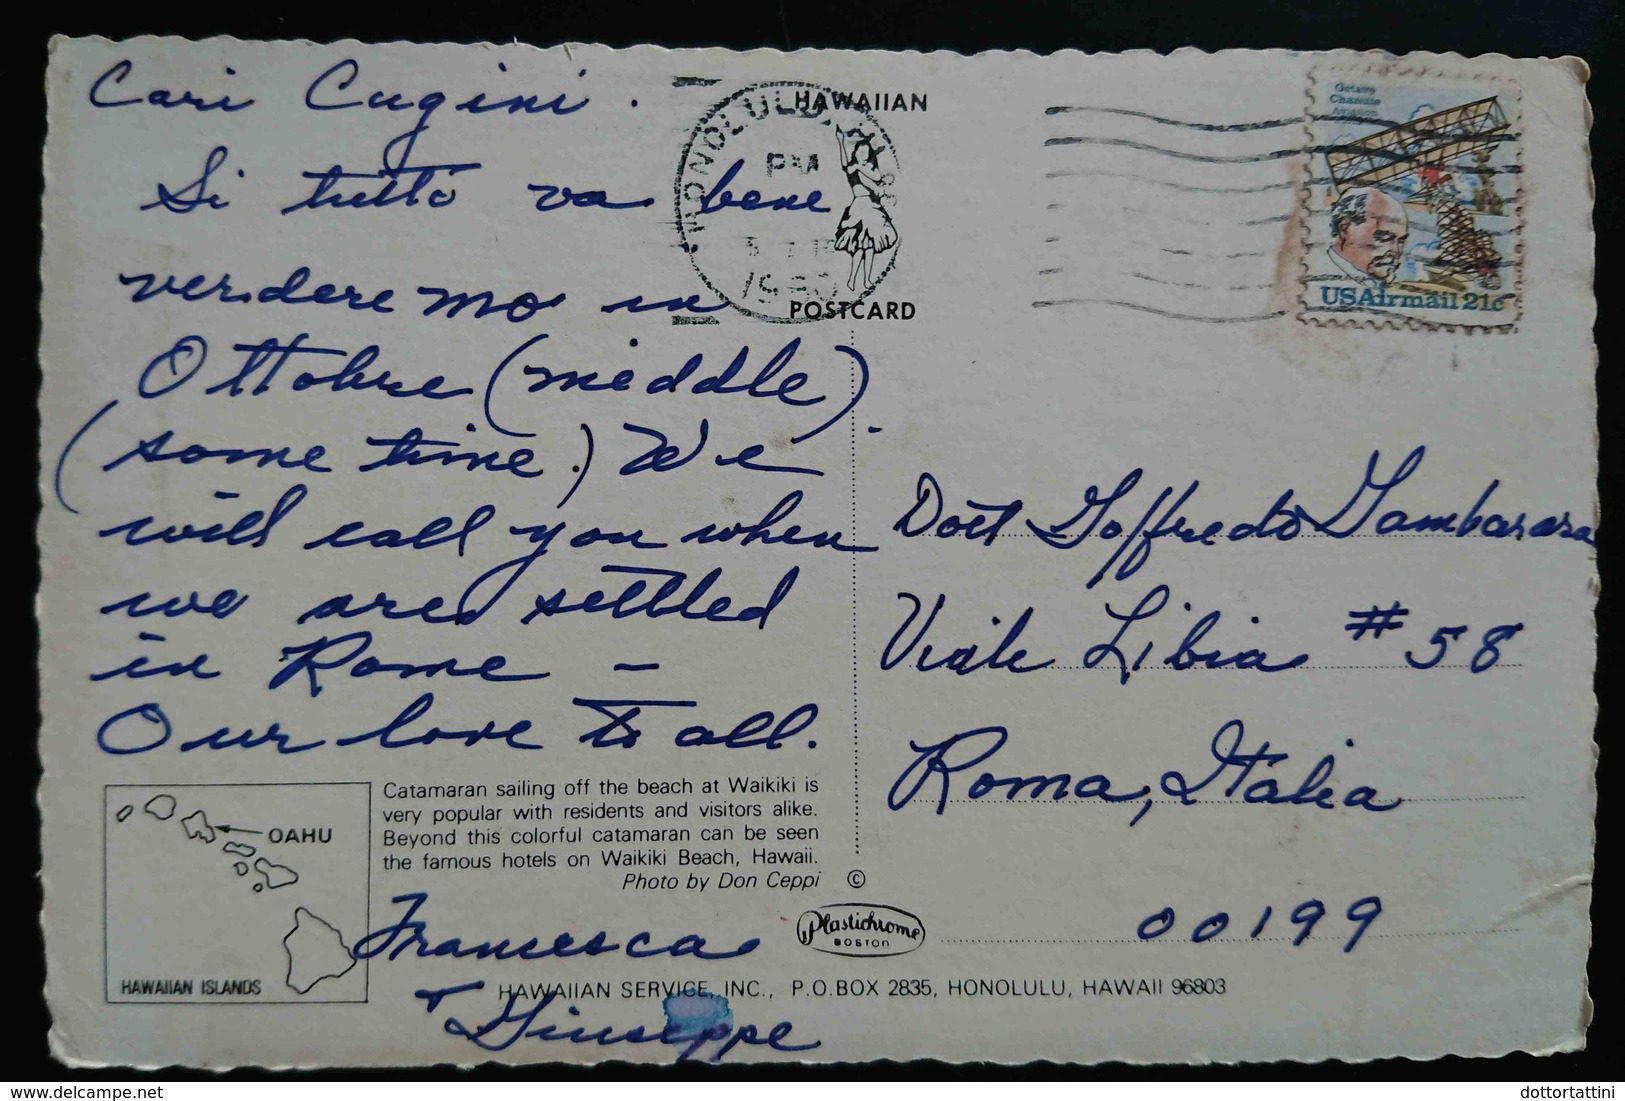 Cari Cugini.
Si tutto va bene
verderemo in
Ottobre (middle).
(some time.) We
will call you when
we are settled
in Rome —
Our love to all.
Francesca
+ Giuseppe
HAWAIIAN
POSTCARD
HONOLULU,
PM
Octave
Chanute
USAirmail 21c
Dott Goffredo Gambarara
Viale Libia # 58
Roma, Italia
00199
OAHU
HAWAIIAN ISLANDS
Catamaran sailing off the beach at Waikiki is
very popular with residents and visitors alike.
Beyond this colorful catamaran can be seen
the famous hotels on Waikiki Beach, Hawaii.
Photo by Don Ceppi ©
Plastichrome
BOSTON
HAWAIIAN SERVICE, INC., P.O.BOX 2835, HONOLULU, HAWAII 96803
delcampe.net
dottortattini